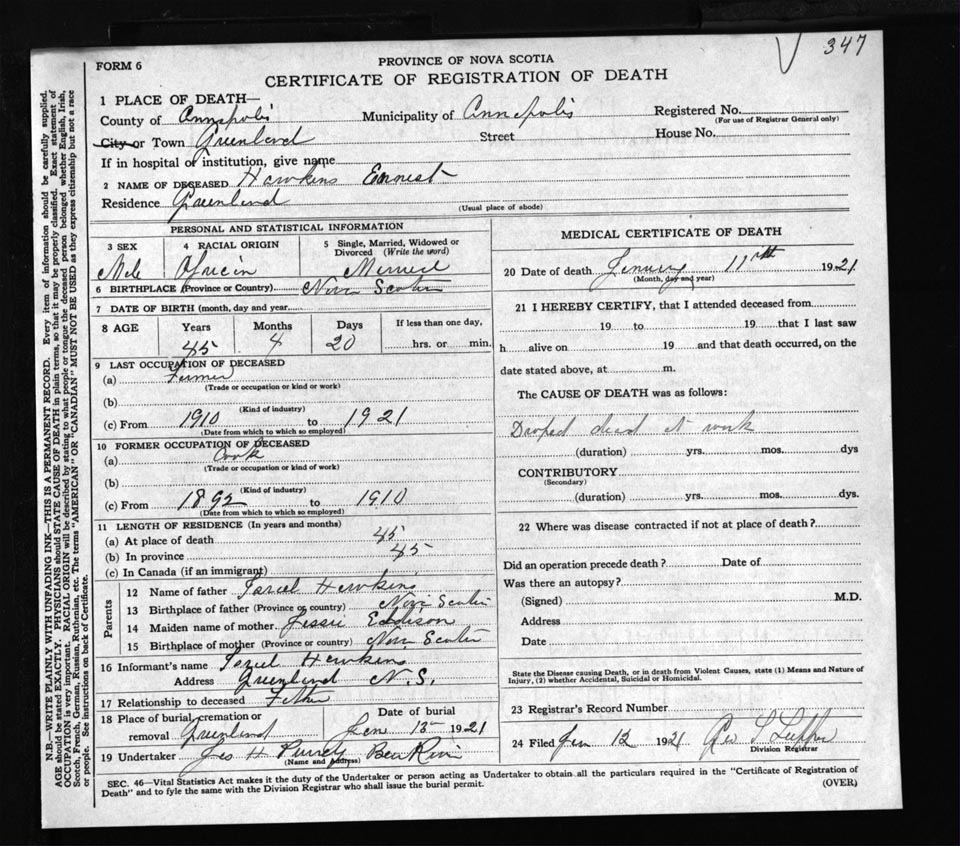 347
FORM 6
PROVINCE OF NOVA SCOTIA
CERTIFICATE OF REGISTRATION OF DEATH
1 PLACE OF DEATH—
County of Annapolis Municipality of Annapolis Registered No.
(For use of Registrar General only)
City or Town Greenland Street House No.
If in hospital or institution, give name
2 NAME OF DECEASED Hawkins Ernest
Residence Greenland
(Usual place of abode)
PERSONAL AND STATISTICAL INFORMATION
3 SEX 4 RACIAL ORIGIN 5 Single, Married, Widowed or Divorced (Write the word)
Male Married
6 BIRTHPLACE (Province or Country) Nova Scotia
7 DATE OF BIRTH (month, day and year)
8 AGE Years Months Days If less than one day,
45 4 20 hrs. or min.
9 LAST OCCUPATION OF DECEASED
(a) Farmer
(Trade or occupation or kind or work)
(b)
(Kind of industry)
(c) From 1910 to 1921
(Date from which to which so employed)
10 FORMER OCCUPATION OF DECEASED
(a) Cook
(Trade or occupation or kind of work)
(b)
(Kind of industry)
(c) From 1892 to 1910
(Date from which to which so employed)
11 LENGTH OF RESIDENCE (In years and months)
(a) At place of death 45
(b) In province 45
(c) In Canada (if an immigrant)
Parents
12 Name of father Hawkins
13 Birthplace of father (Province or country) Nova Scotia
14 Maiden name of mother Jessie Eddison
15 Birthplace of mother (Province or country) Nova Scotia
16 Informant's name Hawkins
Address Greenland N.S.
17 Relationship to deceased Father
18 Place of burial, cremation or removal Greenland Date of burial Jan 13 1921
19 Undertaker Jas H Purdy Bear River
(Name and Address)
MEDICAL CERTIFICATE OF DEATH
20 Date of death January 11th 1921
(Month, day and year)
21 I HEREBY CERTIFY, that I attended deceased from
19 to 19 that I last saw
h alive on 19 and that death occurred, on the
date stated above, at m.
The CAUSE OF DEATH was as follows:
Droped dead at work
(duration) yrs. mos. dys
CONTRIBUTORY
(Secondary)
(duration) yrs. mos. dys.
22 Where was disease contracted if not at place of death?
Did an operation precede death? Date of
Was there an autopsy?
(Signed) M.D.
Address
Date
State the Disease causing Death, or in death from Violent Causes, state (1) Means and Nature of
Injury, (2) whether Accidental, Suicidal or Homicidal.
23 Registrar's Record Number
24 Filed Jan 12 1921 Geo
Division Registrar
SEC. 46—Vital Statistics Act makes it the duty of the Undertaker or person acting as Undertaker to obtain all the particulars required in the "Certificate of Registration of
Death" and to fyle the same with the Division Registrar who shall issue the burial permit.
(OVER)
N.B.—WRITE PLAINLY WITH UNFADING INK—THIS IS A PERMANENT RECORD. Every item of information should be carefully supplied.
AGE should be stated EXACTLY. PHYSICIANS should STATE CAUSE OF DEATH in plain terms, so that it may be properly classified. Exact statement of
OCCUPATION is very important. RACIAL ORIGIN will be described by stating to what people or tongue the deceased person belonged whether English, Irish,
Scotch, French, German, Russian, Ruthenian, etc. The terms "AMERICAN" OR "CANADIAN" MUST NOT BE USED as they express citizenship but not a race
or people. See instructions on back of Certificate.